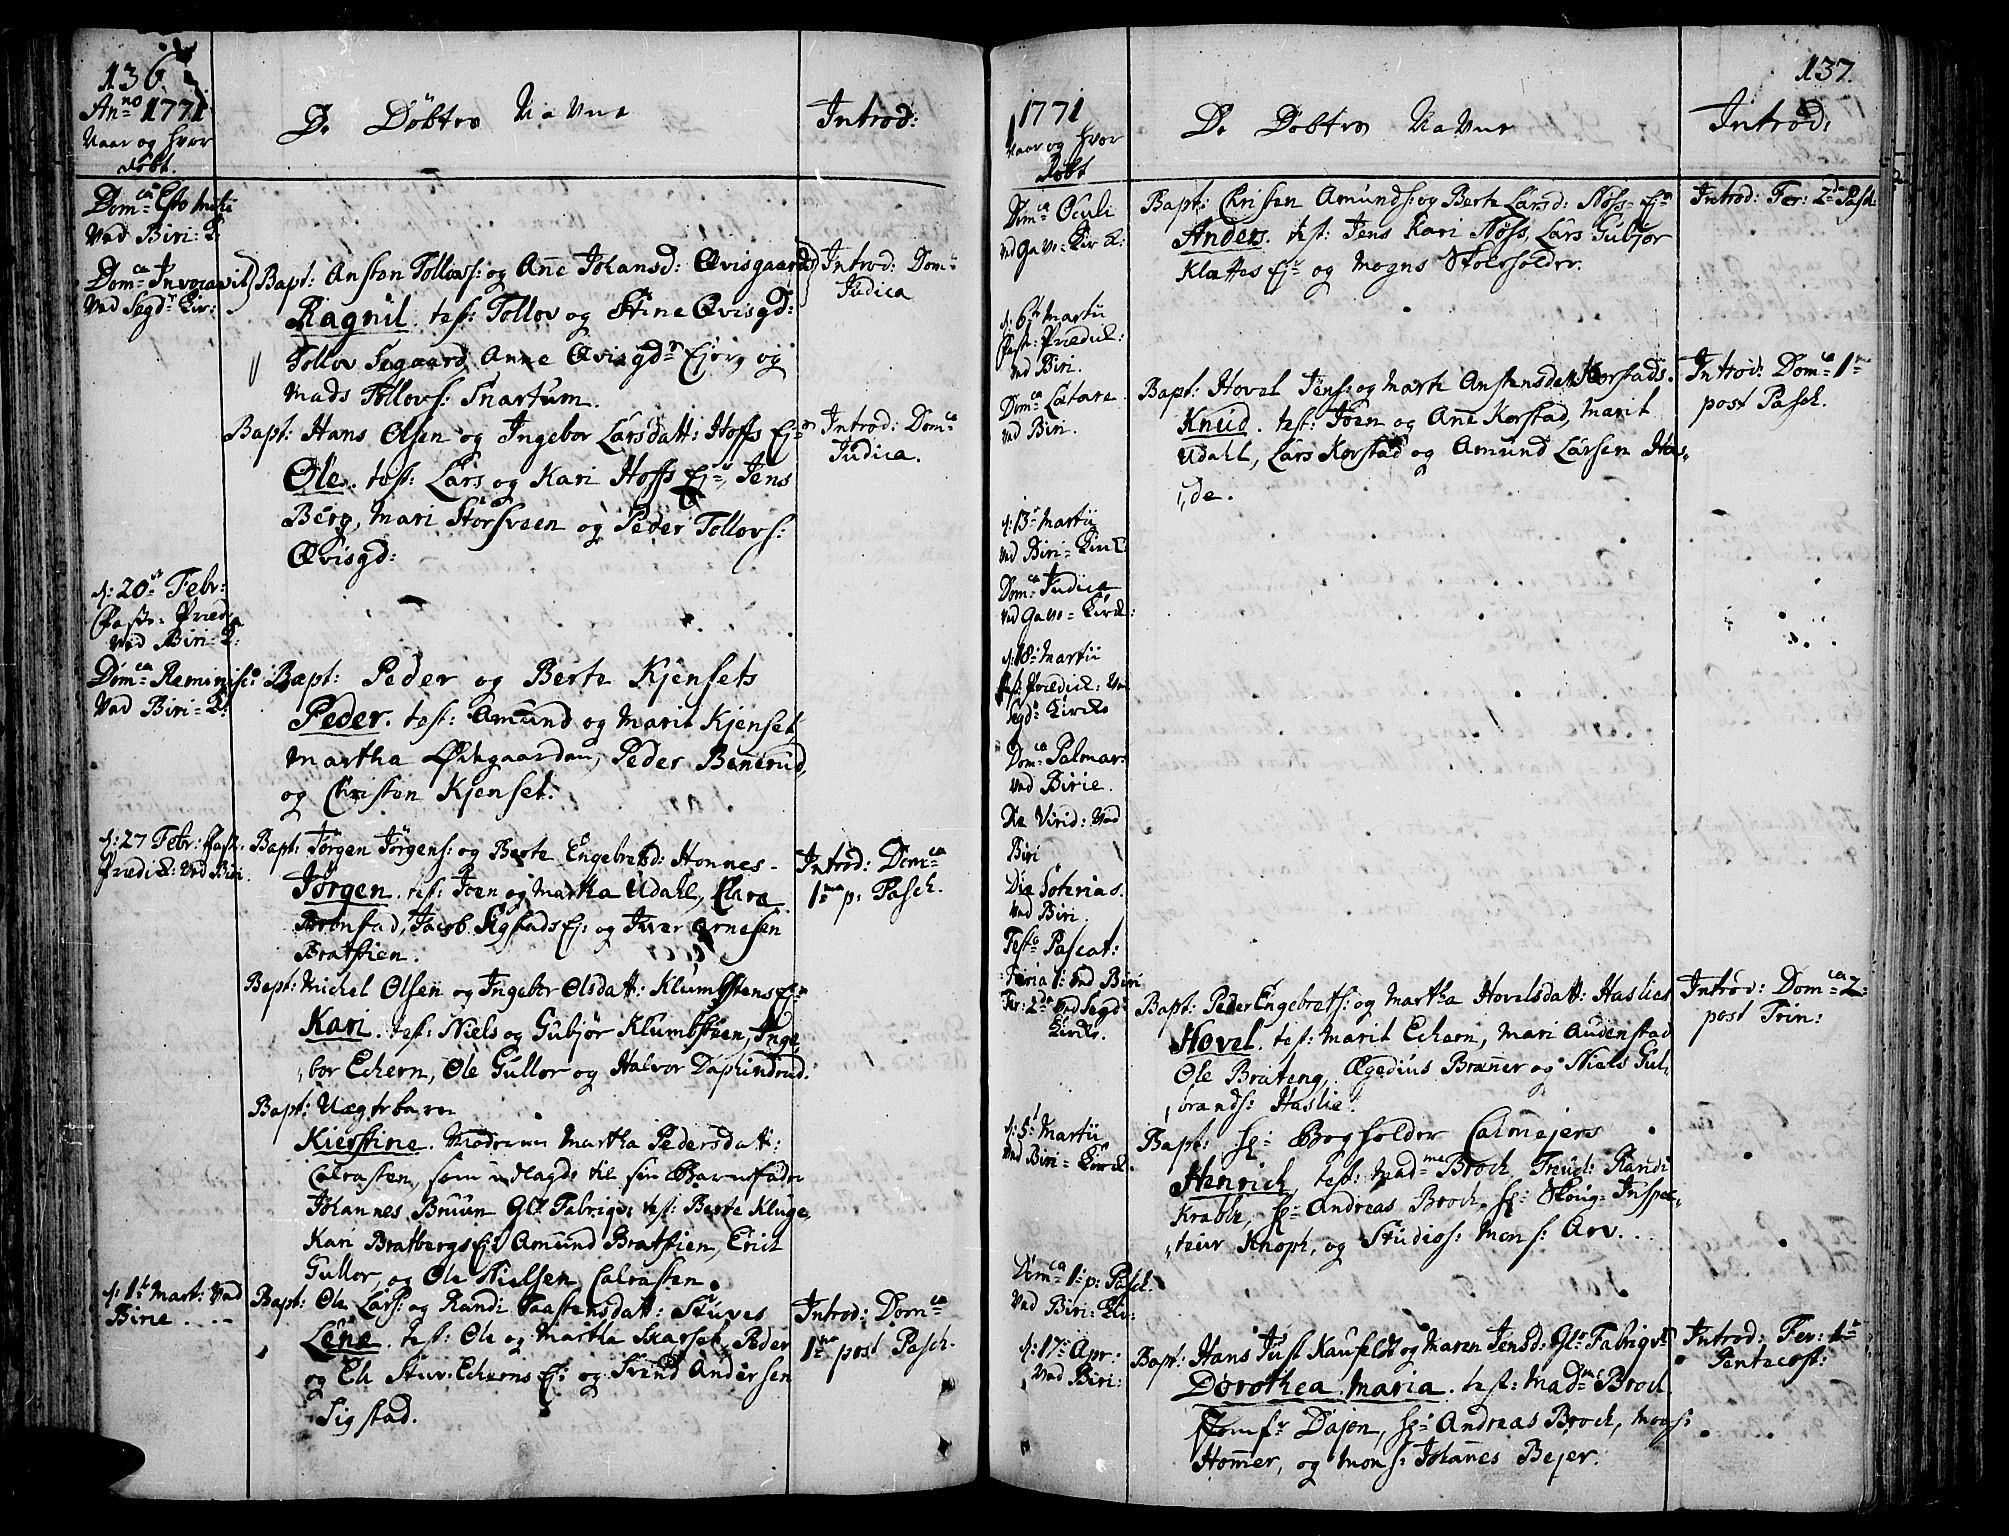 136.
Anno 1771
Naar og hvor
døbt.
De Døbtes Navne
Introd:
Dom:ca Esto mihi
Ved Biri: K:
Dom:ca Invocavit
Ved Segd: Kir:
Bapt: Ansten Tollovs: og Anne Johansd: Øvisgaard
Ragnil. test: Tollov og Stine Øvisgd:
Tollov Segaard, Anne Øvisgds Ejer, og
Mads Tollovs: Snartum.
Introd: Dom:ca
Judica
Bapt: Hans Olsen og Ingebor Larsdatt: Hoffs Ej:
Ole. test: Lars og Kari Hoffs Ej:, Jens
Berg, Mari Storsveen og Peder Tollovs:
Øvisgd:
Introd: Dom:ca
Judica.
d: 20 Febr:
Faste: Præd:
Ved Biri: K:
Dom:ca Reminisc:
Ved Biri: K:
Bapt: Peder og Berte Kjensets
Peder. test: Amund og Marit Kjenset,
Martha Ødegaarden, Peder Benerud,
og Christen Kjenset.
d: 27 Febr: Fast.
Prædik: Ved Biri.
Bapt: Jørgen Jørgens: og Berte Engebretsd: Honnes-
Jørgen. test: Joen og Martha Udahl, Clara
Bronstad, Jacob Sigstads Ej: og Iver Arnesen
Bratstien.
Introd: Dom:ca
1:ma p: Pasch.
Bapt: Michel Olsen og Ingebor Olsdatt: Klumbstens Ej:
Kari. test: Niels og Gubjør Klumbstien, Inge
bor Echern, Ole Gullor og Halvor Daphindrud.
Bapt: Uægte barn
Kierstine. Moderen Martha Pedersdatt:
Calrasten, som udlagde til sin Barnefader
Johannes Bruun Gl: Fabriqv: test: Berte Kluge,
Kari Bratbergs Ej: Amund Bratstien, Erich
Gullor, og Ole Nielsen Calrasten.
d: 1 Mart: Ved
Birie. . --
Bapt: Ole Lars: og Randi Taastensdatt: Stuves
Lene. test: Ole og Martha Skarset, Peder
og Eli Stuv: Echerns Ej: og Svend Andersen
Sigstad.
Introd: Dom:ca
1:ma post Pasch.
137.
1771
Naar og hvor
døbt
De Døbtes Navne
Introd:
Dom:ca Oculi
ved Gave: Kirk:
Bapt: Christen Amunds: og Berte Larsd: Nøss: Ej:
Anders. test: Jens Kari Nøss, Lars Gubjør
Klættes Ej: og Mogns Skoleholder.
Introd: Fer: 2:da Pasch:
d: 6 Martii
Fast: Prædik:
ved Biri.
Dom:ca Lætare
ved Biri.
Bapt: Hovel Jens: og Marte Anstensdatt: Korstads.
Knud. test: Joen og Ane Korstad, Marit
Udahl, Lars Korstad og Amund Larsen Ha-
de.
Introd: Dom:ca 1:ma
post Pasch.
d: 13 Martii
ved Biri: Kirk:
Dom:ca Judica
ved Gave: Kirk:
d: 18 Martii
Fast: Prædik: Ved
Segd: Kircke
Dom:ca Palmar:
ved Birie.
Die Virid: Ved
Biri
Die Soterias.
Ved Biri.
Festo Pascat:
Feria 1: ved Biri
Fer: 2:da ved Segd:
Kircke.
Bapt: Peder Engebrets: og Martha Hovelsdatt: Haslies
Hovel. test: Marit Echern, Mari Audenstad
Ole Brateng, Ægedius Bræner og Niels Gul-
brands: Haslie.
Introd: Dom:ca 2:
post Trin:
d: 5 Martii
Ved Biri: Kirck.
Bapt: Hr: Bogholder Calmejers
Henrich, test: Mad:me Broch, Freud: Randi
Krabbe, Hr: Andreas Broch, Hr: Skoug-Inspec-
teur Knoph, og Studios: Mons: Arv. . .
Dom:ca 1: p: Pasch.
Ved Biri: Kir:
d: 17 Apr:
Ved Biri:
Bapt: Hans Just Kaufeldt og Maren Jensd: Gl: Fabriqv:
Dorothea Maria. test: Mad:me Broch.
Jomfr Dajon, Hr: Andreas Broch, Mogs:
Homer, og Mons: Johanes Bejer.
Introd: Fer: 1:
Pentacost: